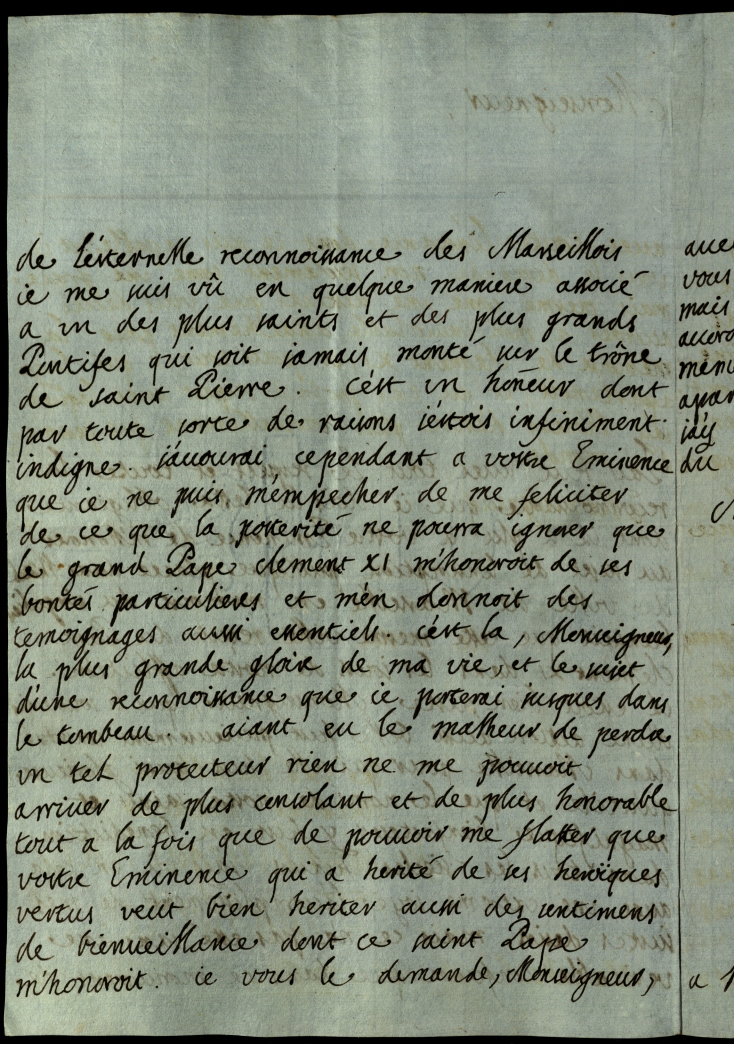 de l'éternelle reconnoissance des Marseillois
ie me suis vû en quelque maniere associé
a un des plus saints et des plus grands
Pontifes qui soit jamais monté sur le trône
de saint Pierre. c'ést un hoñeur dont
par toute sorte de raisons j'éstois infiniment
indigne. j'auourai cependant a vostre Eminence
que ie ne puis m'émpecher de me feliciter
de ce que la posterité ne pourra ignorer que
le grand Pape clement XI m'honoroit de ses
bontés particulieres et m'én donnoit des
temoignages aussi essentiels. c'ést la, Monseigneur,
la plus grande gloire de ma vie, et le sujet
d'une reconnoissance que ie porterai jusques dans
le tombeau. aiant eu le malheur de perdre
un tel protecteur rien ne me pouuoit
arriuer de plus consolant et de plus honorable
tout a la fois que de pouuoir me flatter que
vostre Eminence qui a herité de ses heroiques
vertus veut bien heriter aussi des sentimens
de bienueillance dont ce saint Pape
m'honoroit. ie vous le demande, Monseigneur,
vous
mais
du
a